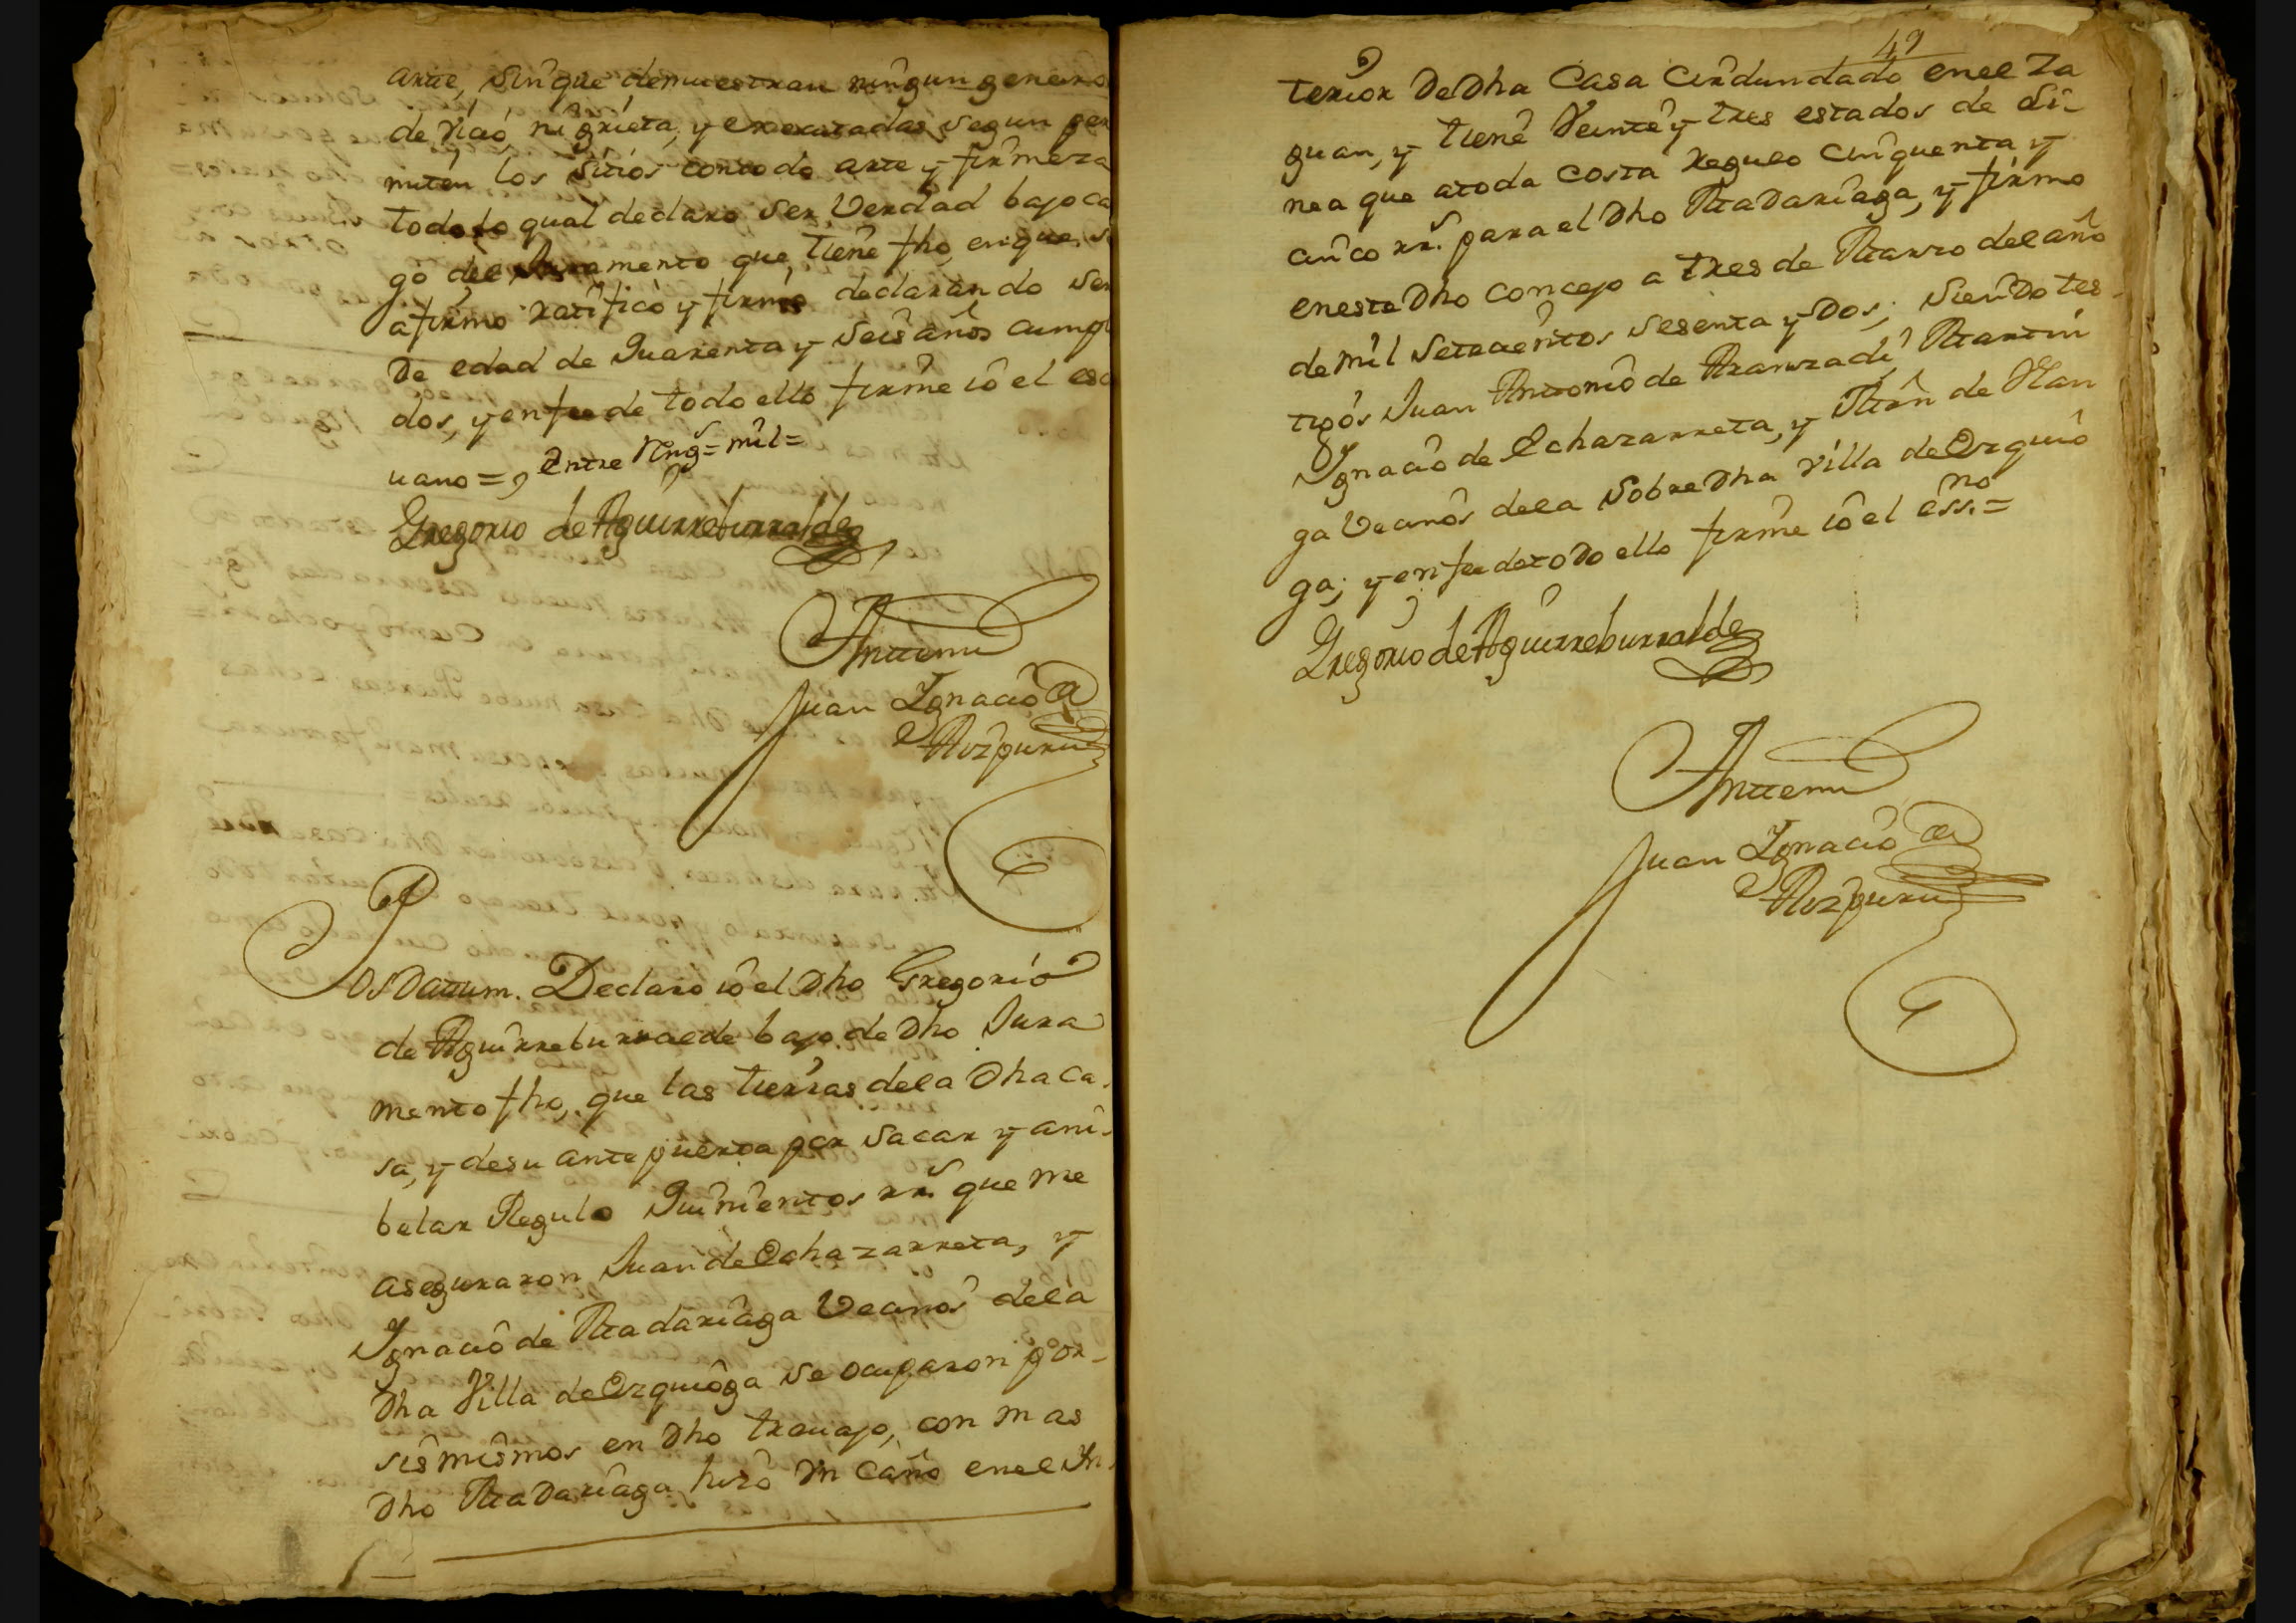 arte, sin que demuestran ningun genero
de vicio, ni grieta, y executadas segun per
miten los sitios con todo arte y firmeza
todo lo qual declaro ser Verdad bajo ca
go del Juramento que tiene fho, en que se
afirmo ratificò y firmò declarando ser
de edad de Quarenta y seis años cumpli
dos, y en fee de todo ello firmè iò el esc
uano = Entre Reng.s = mil =
Gregorio de Aguirreburralde
Antemi
Juan Ignacio de
Aizpuru
Posdatum. Declaro iò el dho Gregorio
de Aguirreburralde bajo de dho Jura
mento fho, que las tierras de la dha ca-
sa, y de su ante puerta por sacar y ani-
belar Regulo Quinientos rr.s que me
aseguraron Juan de Echazarreta, y
Ignacio de Madariaga Vecinos de la
dha Villa de Ezquioga se ocuparon por-
sis mismos en dho trauajo, con mas
dho Madariaga hizò Vn caño en el In
49
terior de dha Casa Cirdundado en el Za
guan, y tiene Veinte y tres estados de li-
nea que a toda costa regulo cinquenta y
cinco rr.s para el dho Madariaga, y firmo
en este dho concejo a tres de Marzo del año
de mil setecientos sesenta y dos; siendo tes-
tigos Juan Antonio de Aranzadi, Martin
Ignacio de Echazarreta, y Mrn de Olan
ga Vecinos de la sobre dha villa de Ezquio
ga; y en fee de todo ello firmè iò el ess.no =
Gregorio de Aguirreburralde
Antemi
Juan Ignacio de
Aizpuru